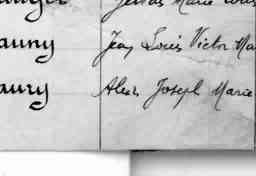 Marie
auny Jean Louis Victor Ma
aury Alexis Joseph Marie